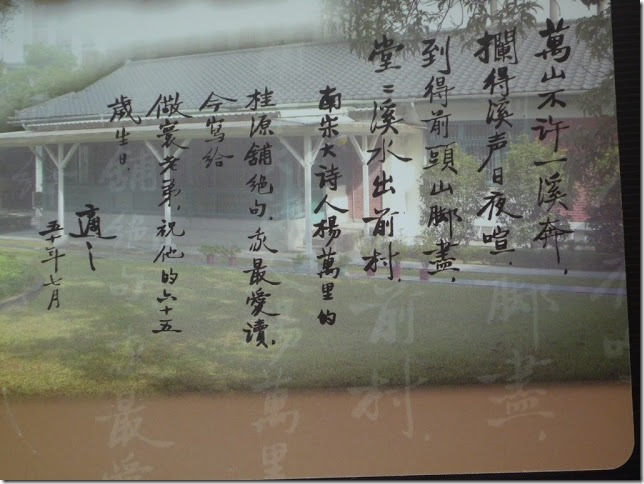 萬山不许一溪奔，
攔得溪声日夜喧．
到得前頭山脚盡，
堂〻溪水出前村．
南宋大诗人楊萬里的
桂源鋪絶句，我最愛讀，
今寫给
儆寰老弟，祝他的六十五
歲生日．
適之
五十年七月